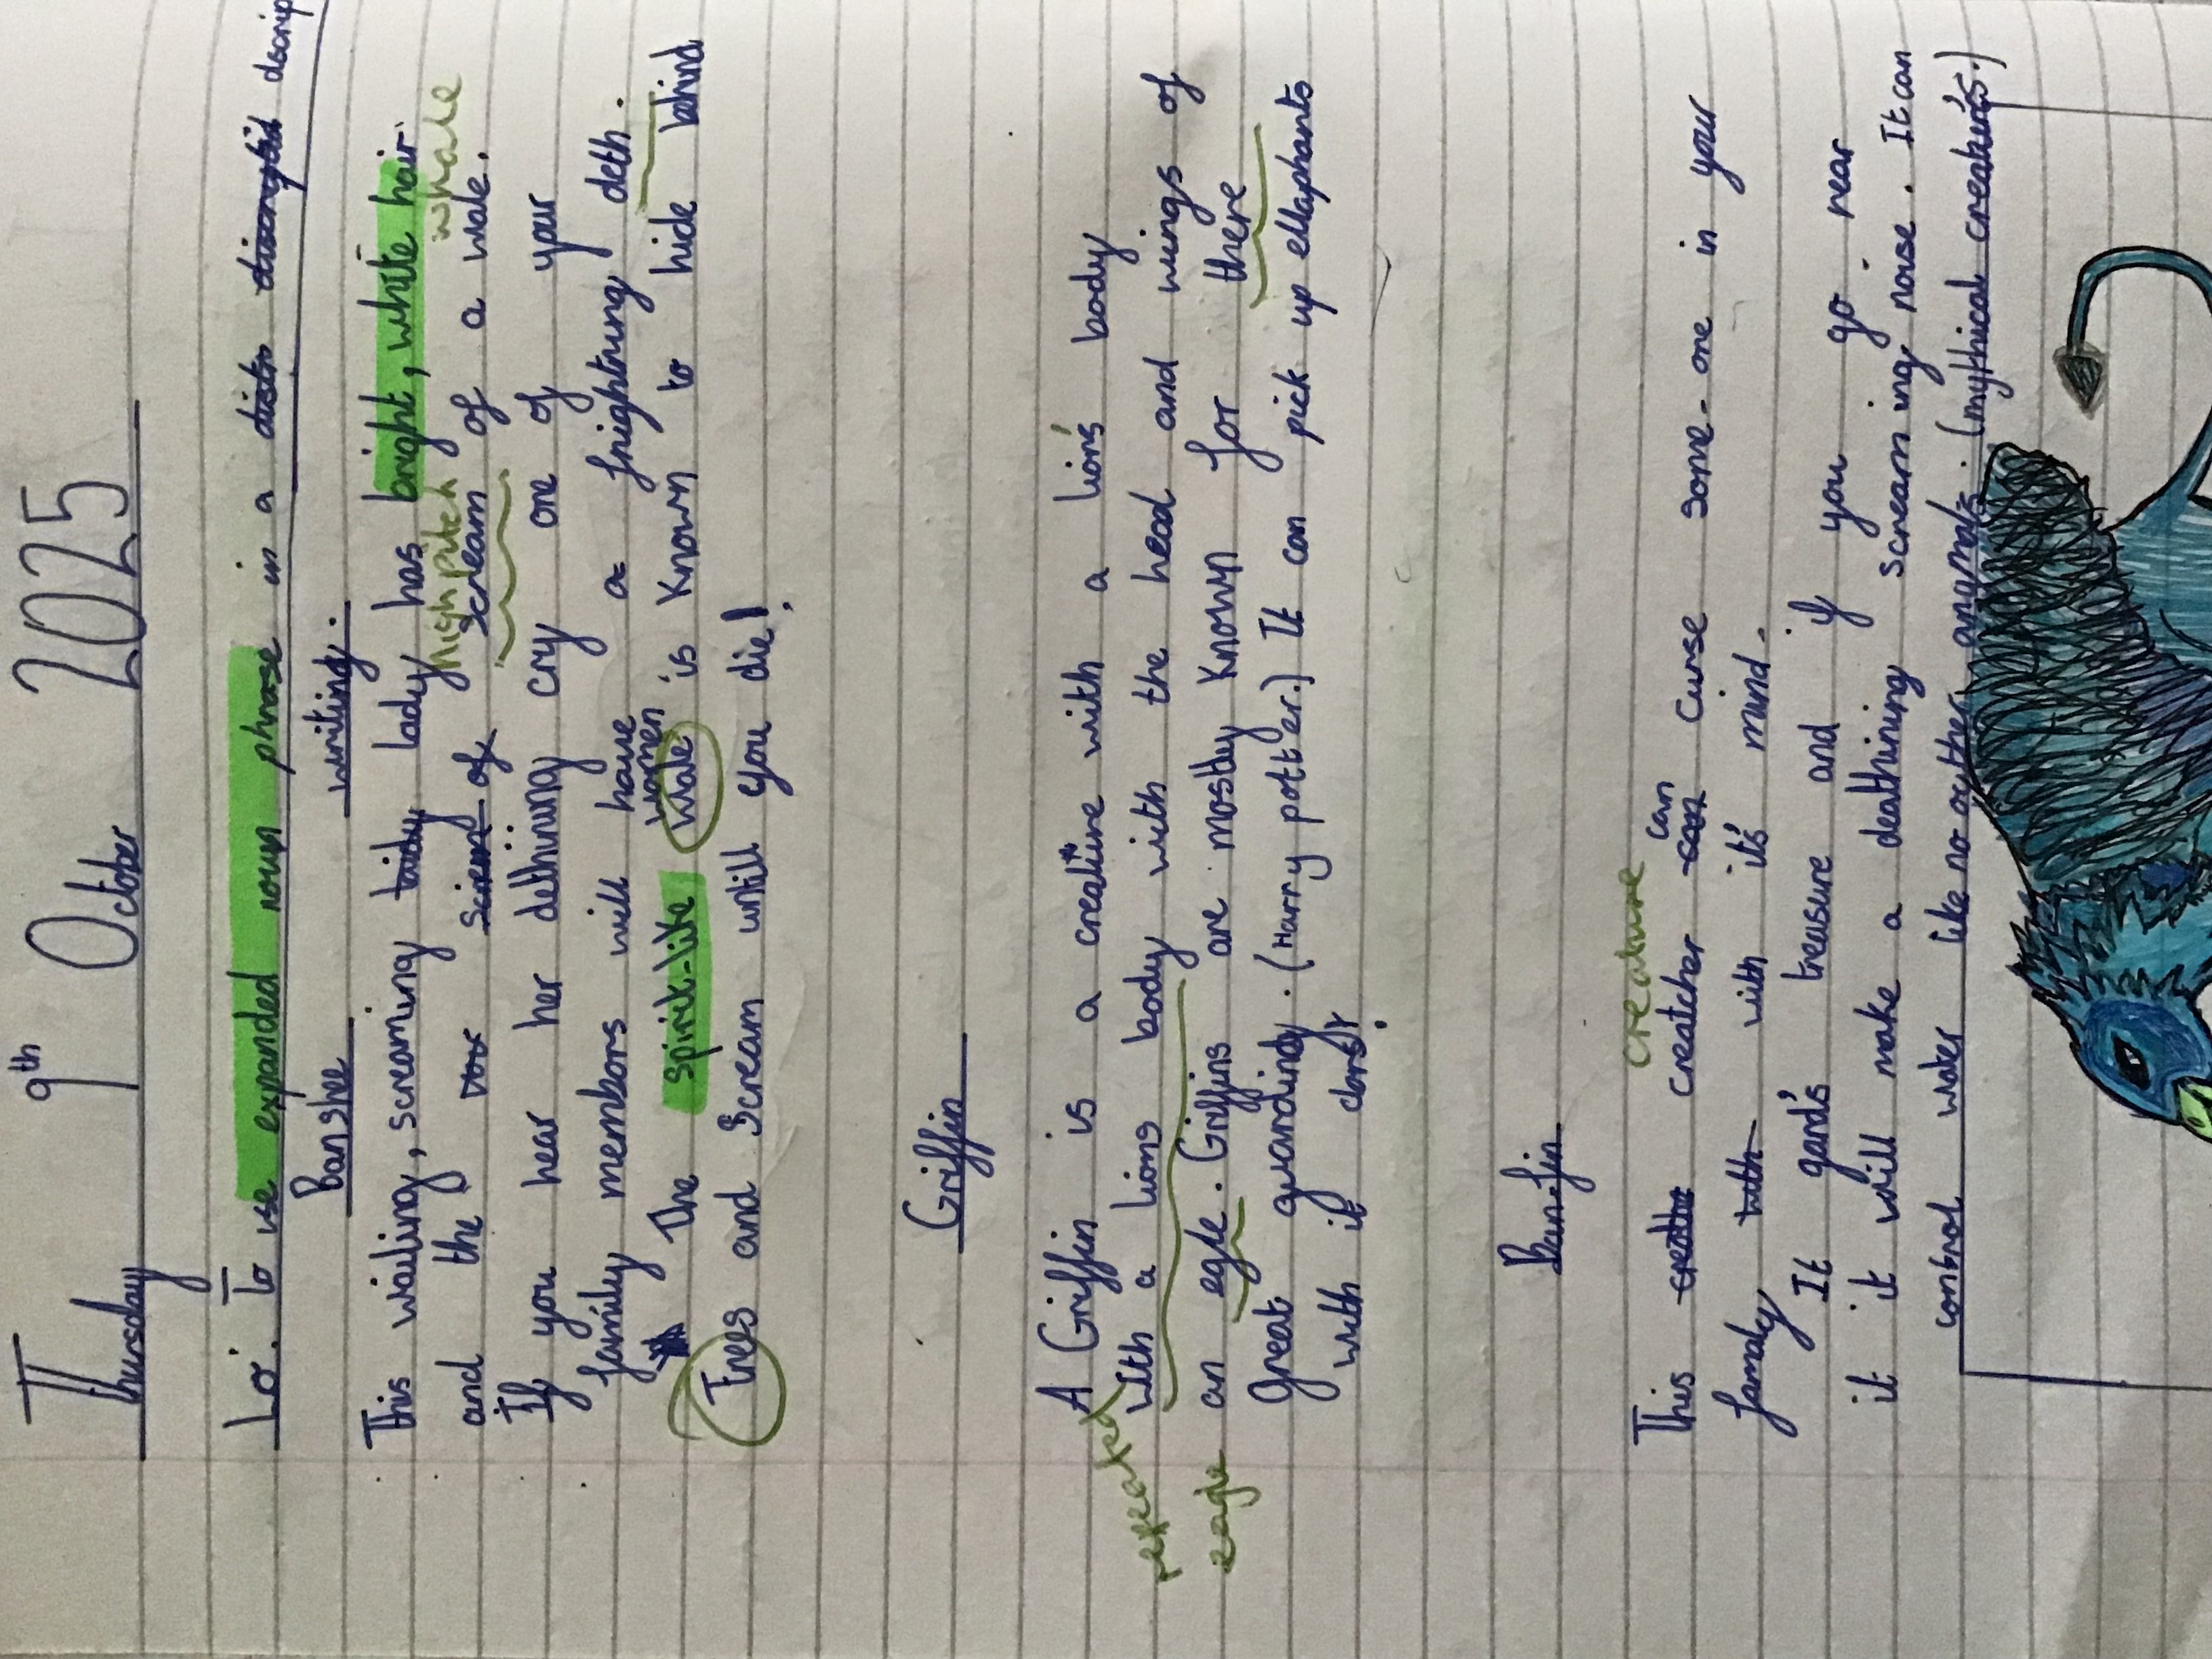 Thursday 9th October 2025
Lo: To use expanded noun phrase in a descrip
Banshee writing.
This wailing, screaming lady has bright, white hair
high pitch whale
and the scream of a wale.
If you hear her dethining cry one of your
family membors will have a frightning deth.
women
The spirit-like wale is known to hide behind
Trees and scream untill you die!
Griffin
A Griffin is a creature with a lion's body
repeated
with a lions body with the head and wings of
eagle
an egle. Griffins are mostley known for there
Great guarding. (Harry potter.) It can pick up ellaphants
with it claws.
Bun-fin
creature
can
This creatcher curse some-one in your
famaley with it's mind.
It gard's treasure and if you go near
it it will make a deathining screaming noise. It can
control water like no outher anamals. (mythical creaters.)